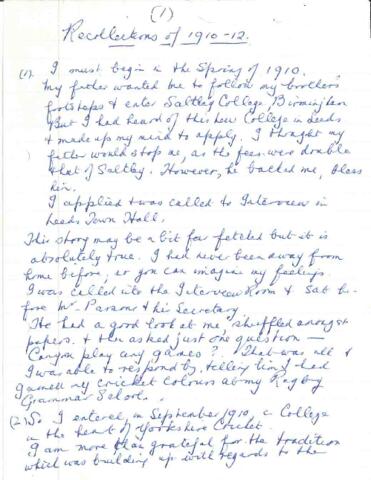 (1)
Recollections of 1910-12.
(1). I must begin in the Spring of 1910.
My father wanted me to follow my brother's
footsteps & enter Saltley College, Birmingham
But I had heard of this new College in Leeds
& made up my mind to apply. I thought my
father would stop me, as the fees were double
that of Saltley. However, he backed me, bless
him.
I applied & was called to Interview in
Leeds Town Hall.
This story may be a bit far fetched but it is
absolutely true. I had never been away from
home before, so you can imagine my feelings.
I was called into the Interview Room & sat be-
fore Mr Parsons & his Secretary
He had a good look at me, shuffled amongst
papers. & then asked just one question —
Can you play any games?. That was all &
I was able to respond by telling him I had
gained my cricket colours at my Rugby
Grammar School.
(2) So I entered, in September 1910, a College
in the heart of Yorkshire Cricket.
I am more than grateful for the tradition
which was building up with regards to the